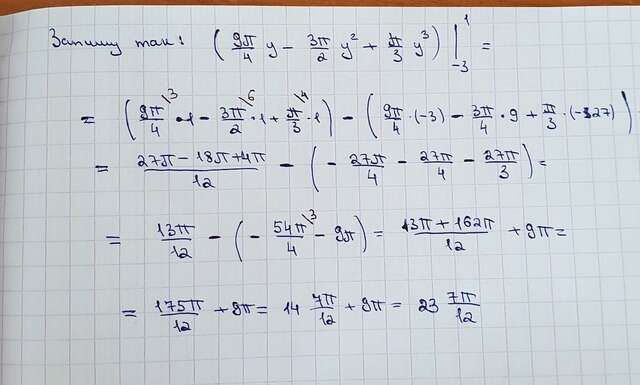 Запишу так: (9π/4 y − 3π/2 y² + π/3 y³) |₋₃¹ =
= (9π/4\3 · 1 − 3π/2\6 · 1 + π/3\4 · 1) − (9π/4 · (−3) − 3π/4 · 9 + π/3 · (−27)) =
= (27π − 18π + 4π)/12 − (− 27π/4 − 27π/4 − 27π/3) =
= 13π/12 − (− 54π/4\3 − 9π) = (13π + 162π)/12 + 9π =
= 175π/12 + 9π = 14 7π/12 + 9π = 23 7π/12